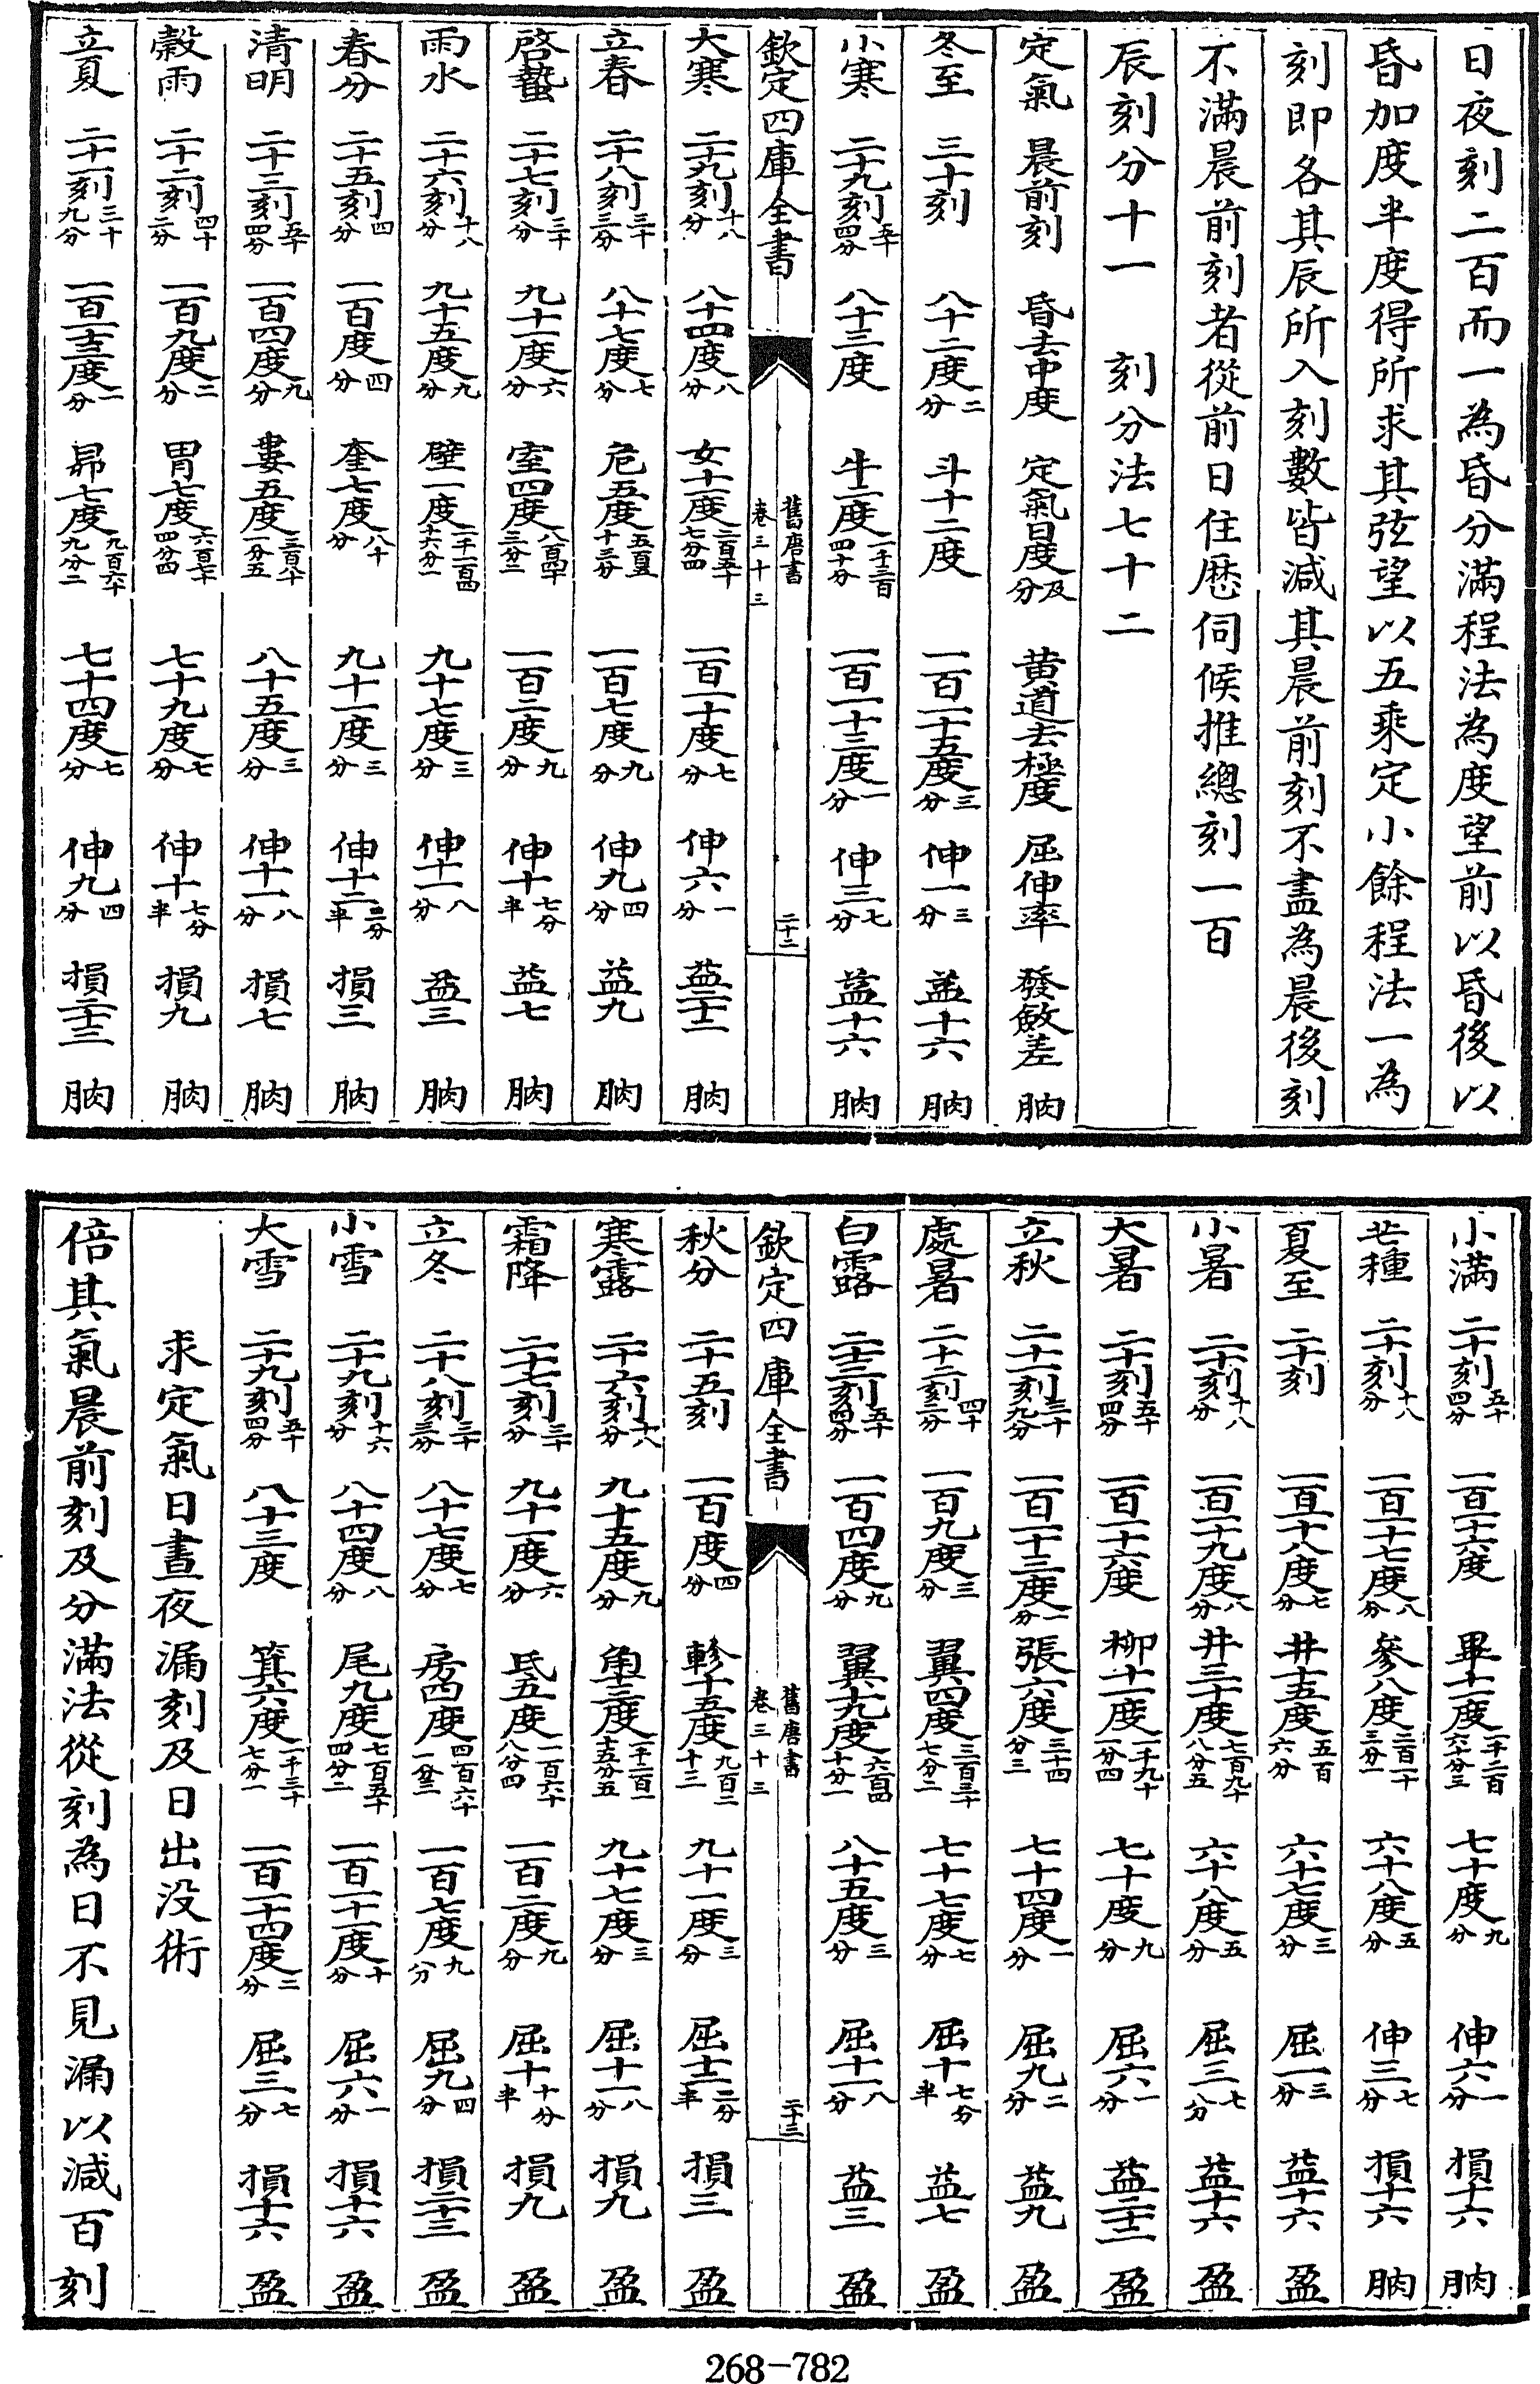 日夜刻二百而一為昏分滿程法為度望前以昏後以
昏加度半度得所求其弦望以五乘定小餘程法一為
刻即各其辰所入刻數皆減其晨前刻不盡為晨後刻
不滿晨前刻者從前日住厯伺候推總刻一百
辰刻分十一　刻分法七十二
定氣　晨前刻　昏去中度　定氣日度及分　黄道去極度　屈伸率　發斂差　朒
冬至　三十刻　八十二度二分　斗十二度　一百一十五度三分　伸一三分　益十六　朒
小寒　二十九刻五十四分　八十三度　牛一度一千三百四十分　一百一十三度一分　伸三七分　益十六　朒
欽定四庫全書　舊唐書卷三十三　二十二
大寒　二十九刻十八分　八十四度八分　女十一度二百五十七分四　一百一十度七分　伸六一分　益二十二　朒
立春　二十八刻三十三分　八十七度七分　危五度五百五十三分　一百七度九分　伸九四分　益九　朒
啓蟄　二十七刻三十分　九十一度六分　室四度八百四十三分二　一百二度九分　伸十七分半　益七　朒
雨水　二十六刻十八分　九十五度九分　壁一度一千一百四十六分一　九十七度三分　伸十一八分　益三　朒
春分　二十五刻四分　一百度四分　奎七度八十分　九十一度三分　伸十二二分半　損三　朒
清明　二十三刻五十四分　一百四度九分　婁五度三百七十一分五　八十五度三分　伸十一八分　損七　朒
穀雨　二十二刻四十二分　一百九度二分　胃七度六百七十四分四　七十九度七分　伸十七分半　損九　朒
立夏　二十一刻三十九分　一百一十三度一分　昴七度九百六十九分二　七十四度七分　伸九四分　損二十三　朒
小滿　二十刻五十四分　一百一十六度　畢十一度一千二百六十分三　七十度九分　伸六一分　損十六　朒
芒種　二十刻十八分　一百一十七度八分　參八度二百二十三分一　六十八度五分　伸三七分　損十六　朒
夏至　二十刻　一百一十八度七分　井十五度五百六分　六十七度三分　屈一三分　益十六　盈
小暑　二十刻十八分　一百一十九度八分　井三十度七百九十八分五　六十八度五分　屈三七分　益十六　盈
大暑　二十刻五十四分　一百一十六度　柳十一度一千九十一分四　七十度九分　屈六一分　益二十二　盈
立秋　二十一刻三十九分　一百一十三度一分　張六度三十四分三　七十四度一分　屈九二分　益九　盈
處暑　二十二刻四十二分　一百九度三分　翼四度三百三十七分二　七十七度七分　屈十七分半　益七　盈
白露　二十三刻五十四分　一百四度九分　翼十九度六百四十分一　八十五度三分　屈十一八分　益三　盈
欽定四庫全書　舊唐書卷三十三　二十三
秋分　二十五刻　一百度四分　軫十五度九百二十三　九十一度三分　屈十二二分半　損三　盈
寒露　二十六刻十八分　九十五度九分　角十三度一千二百一十五分五　九十七度三分　屈十一八分　損九　盈
霜降　二十七刻三十分　九十一度六分　氐五度一百六十八分四　一百二度九分　屈十十分半　損九　盈
立冬　二十八刻三十三分　八十七度七分　房四度四百六十一分三　一百七度九分　屈九四分　損二十三　盈
小雪　二十九刻十六分　八十四度八分　尾九度七百五十四分二　一百一十一度十分　屈六一分　損十六　盈
大雪　二十九刻五十四分　八十三度　箕六度一千三十七分一　一百一十四度二分　屈三七分　損十六　盈
求定氣日晝夜漏刻及日出没術
倍其氣晨前刻及分滿法從刻為日不見漏以減百刻
268-782